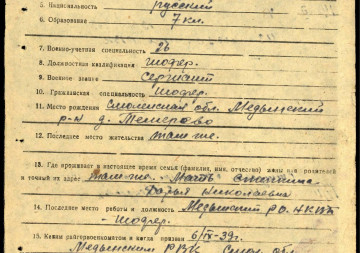 5. Национальность русский
6. Образование 7 кл.
7. Военно-учетная специальность 26
8. Должностная квалификация шофер.
9. Военное звание сержант
10. Гражданская специальность шофер.
11. Место рождения Смоленская обл. Медынский
р-н д.
12. Последнее место жительства там же.
13. Где проживает в настоящее время семья (фамилия, имя, отчество) жены или родителей
и точный их адрес Там же - Мать
Дарья Николаевна
14. Последнее место работы и должность Медынский
- шофер.
15. Каким райгорвоенкоматом и когда призван 6/IX-39г.
Медынским РВК Смол. обл.